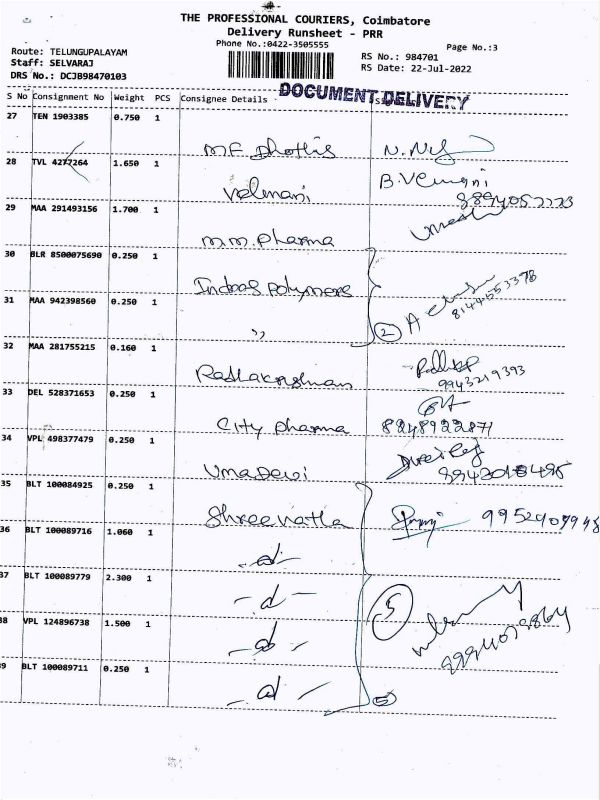 THE PROFESSIONAL COURIERS, Coimbatore
Delivery Runsheet - PRR
Phone No.:0422-3505555
Page No.:3
Route: TELUNGUPALAYAM
Staff: SELVARAJ
DRS No.: DCJB98470103
RS No.: 984701
RS Date: 22-Jul-2022
S No Consignment No Weight PCS Consignee Details
DOCUMENT DELIVERY
27 TEN 1903385 0.750 1
MF
28 TVL 4277264 1.650 1
Velmani
29 MAA 291493156 1.700 1
M.M. Pharma
30 BLR 8500075690 0.250 1
Indoas Polymers
31 MAA 942398560 0.250 1
,,
2
8144553378
32 MAA 281755215 0.160 1
Radhakrishnan
9943219393
33 DEL 528371653 0.250 1
City Pharma 8248922871
34 VPL 498377479 0.250 1
Uma Devi
35 BLT 100084925 0.250 1
Shree
36 BLT 100089716 1.060 1
-d-
37 BLT 100089779 2.300 1
-d-
5
38 VPL 124896738 1.500 1
-d-
39 BLT 100089711 0.250 1
-d-
5